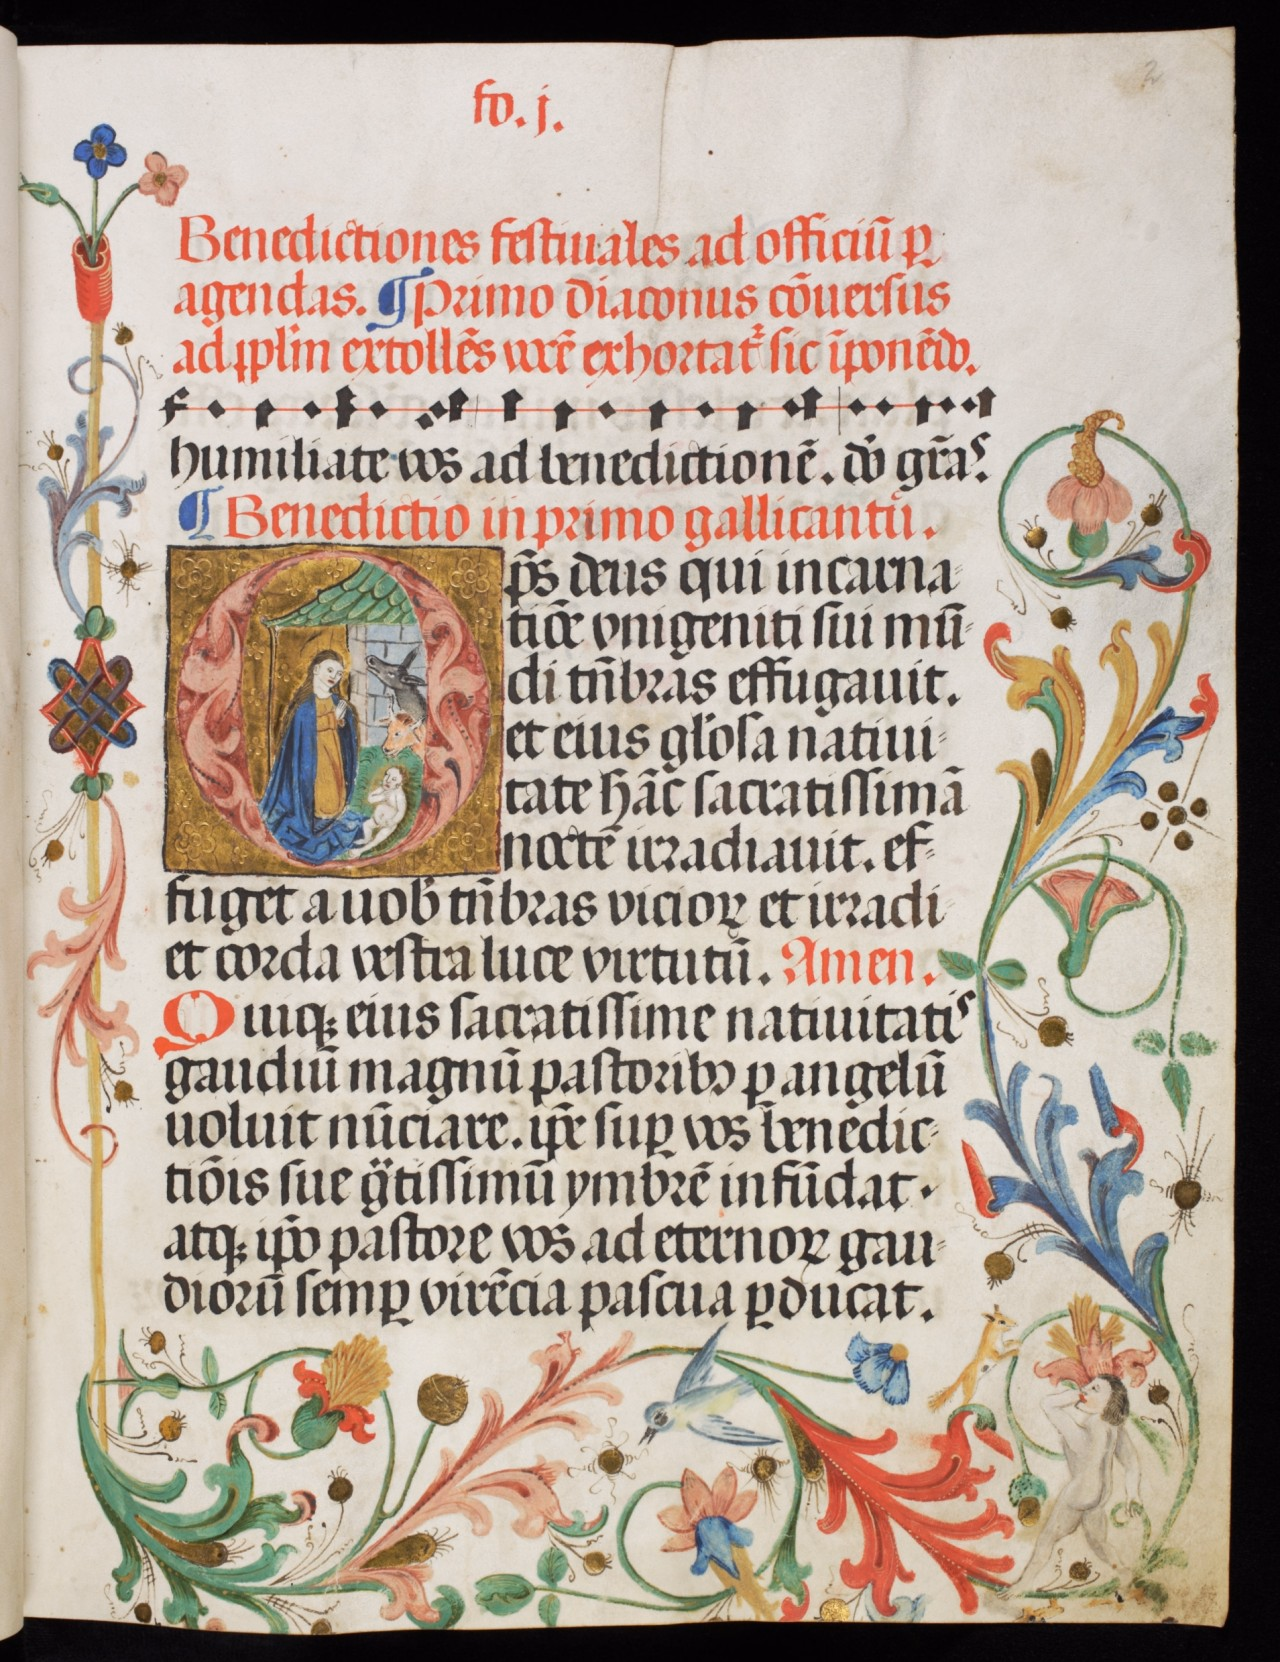 fo. j.
2
Benedictiones festiuales ad officiū ꝑ
agendas. ¶ Primo diaconus cōuersus
ad pplm̄ extollēs vocē exhortat᷑ sic īponēdo.
humiliate vos ad benedictionē. dō grās.
¶ Benedictio in primo gallicantū.
Op̄s deus qui incarna-
tiōe vnigeniti sui mū-
di tn̄bras effugauit.
et eius glosa natiui-
tate hāc sacratissimā
noctē irradiauit. ef-
fuget a uob̄ tn̄bras vicioꝝ et irradi-
et corda vestra luce virtutū. Amen.
Quiqꝫ eius sacratissime natiuitatis
gaudiū magnū pastoribꝫ ꝑ angelū
uoluit nūciare. ip̄e suꝑ vos benedic-
tiōis sue gͣtissimū ymbrē infūdat.
atqꝫ ip̄o pastore vos ad eternoꝝ gau-
diorū semꝑ virēcia pascua ꝑducat.